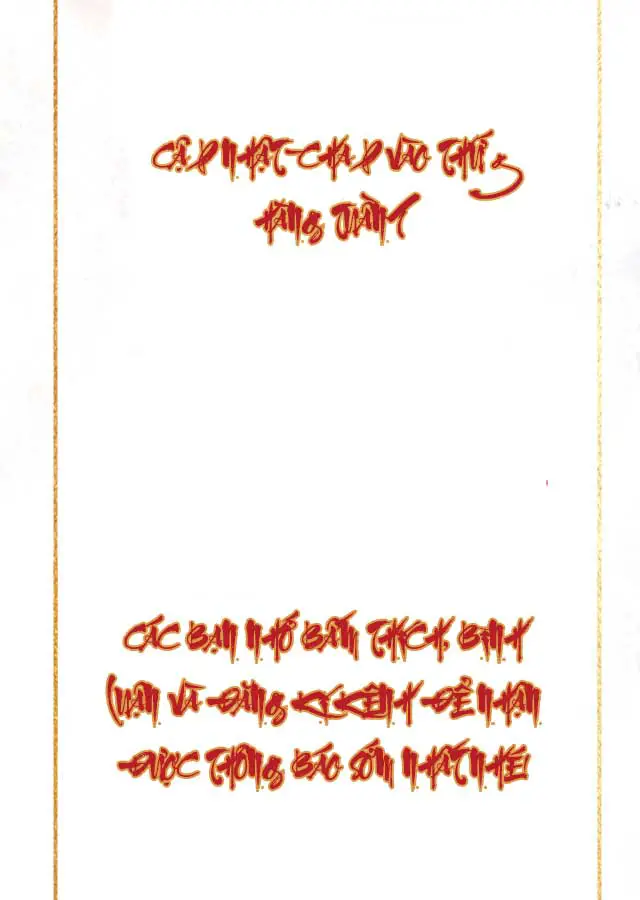 CẬP NHẬT CHAP VÀO THỨ 5
HÀNG TUẦN
CÁC BẠN NHỚ BẤM THÍCH, BÌNH
LUẬN VÀ ĐĂNG KÝ KÊNH ĐỂ NHẬN
ĐƯỢC THÔNG BÁO SỚM NHẤT NHÉ!